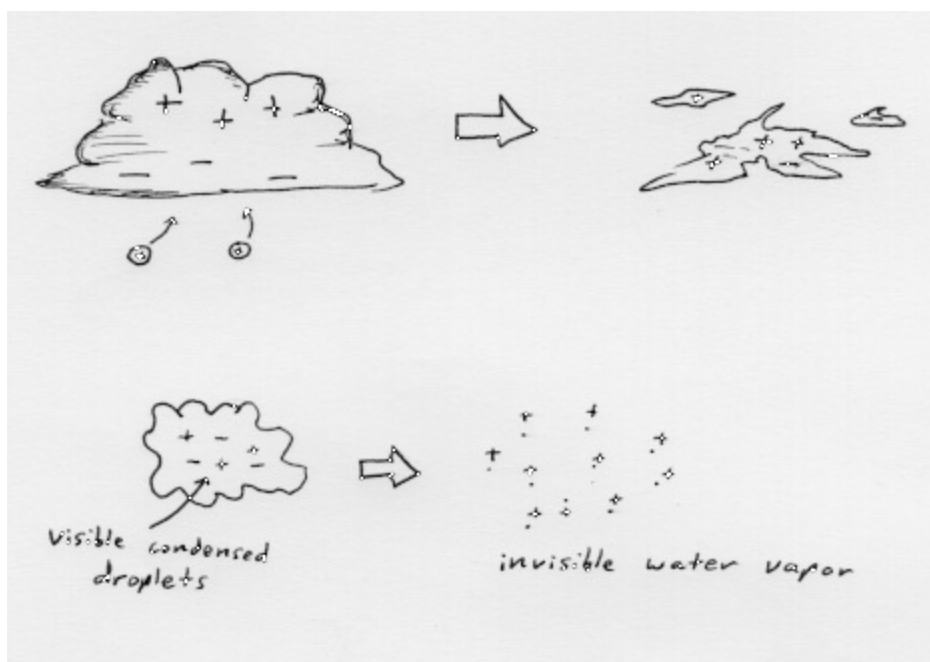 visible condensed
droplets
invisible water vapor